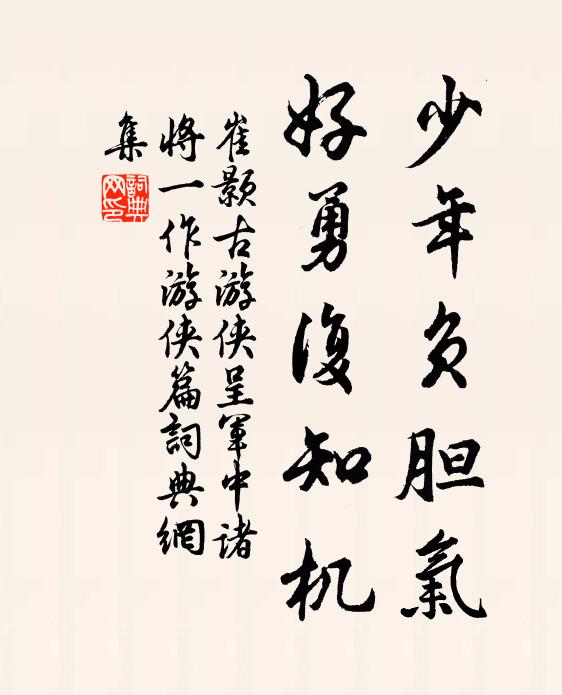 少年负胆氣
好勇復知机
崔颢古游侠呈军中诸
将一作游侠篇詞典網
集
詞典网印